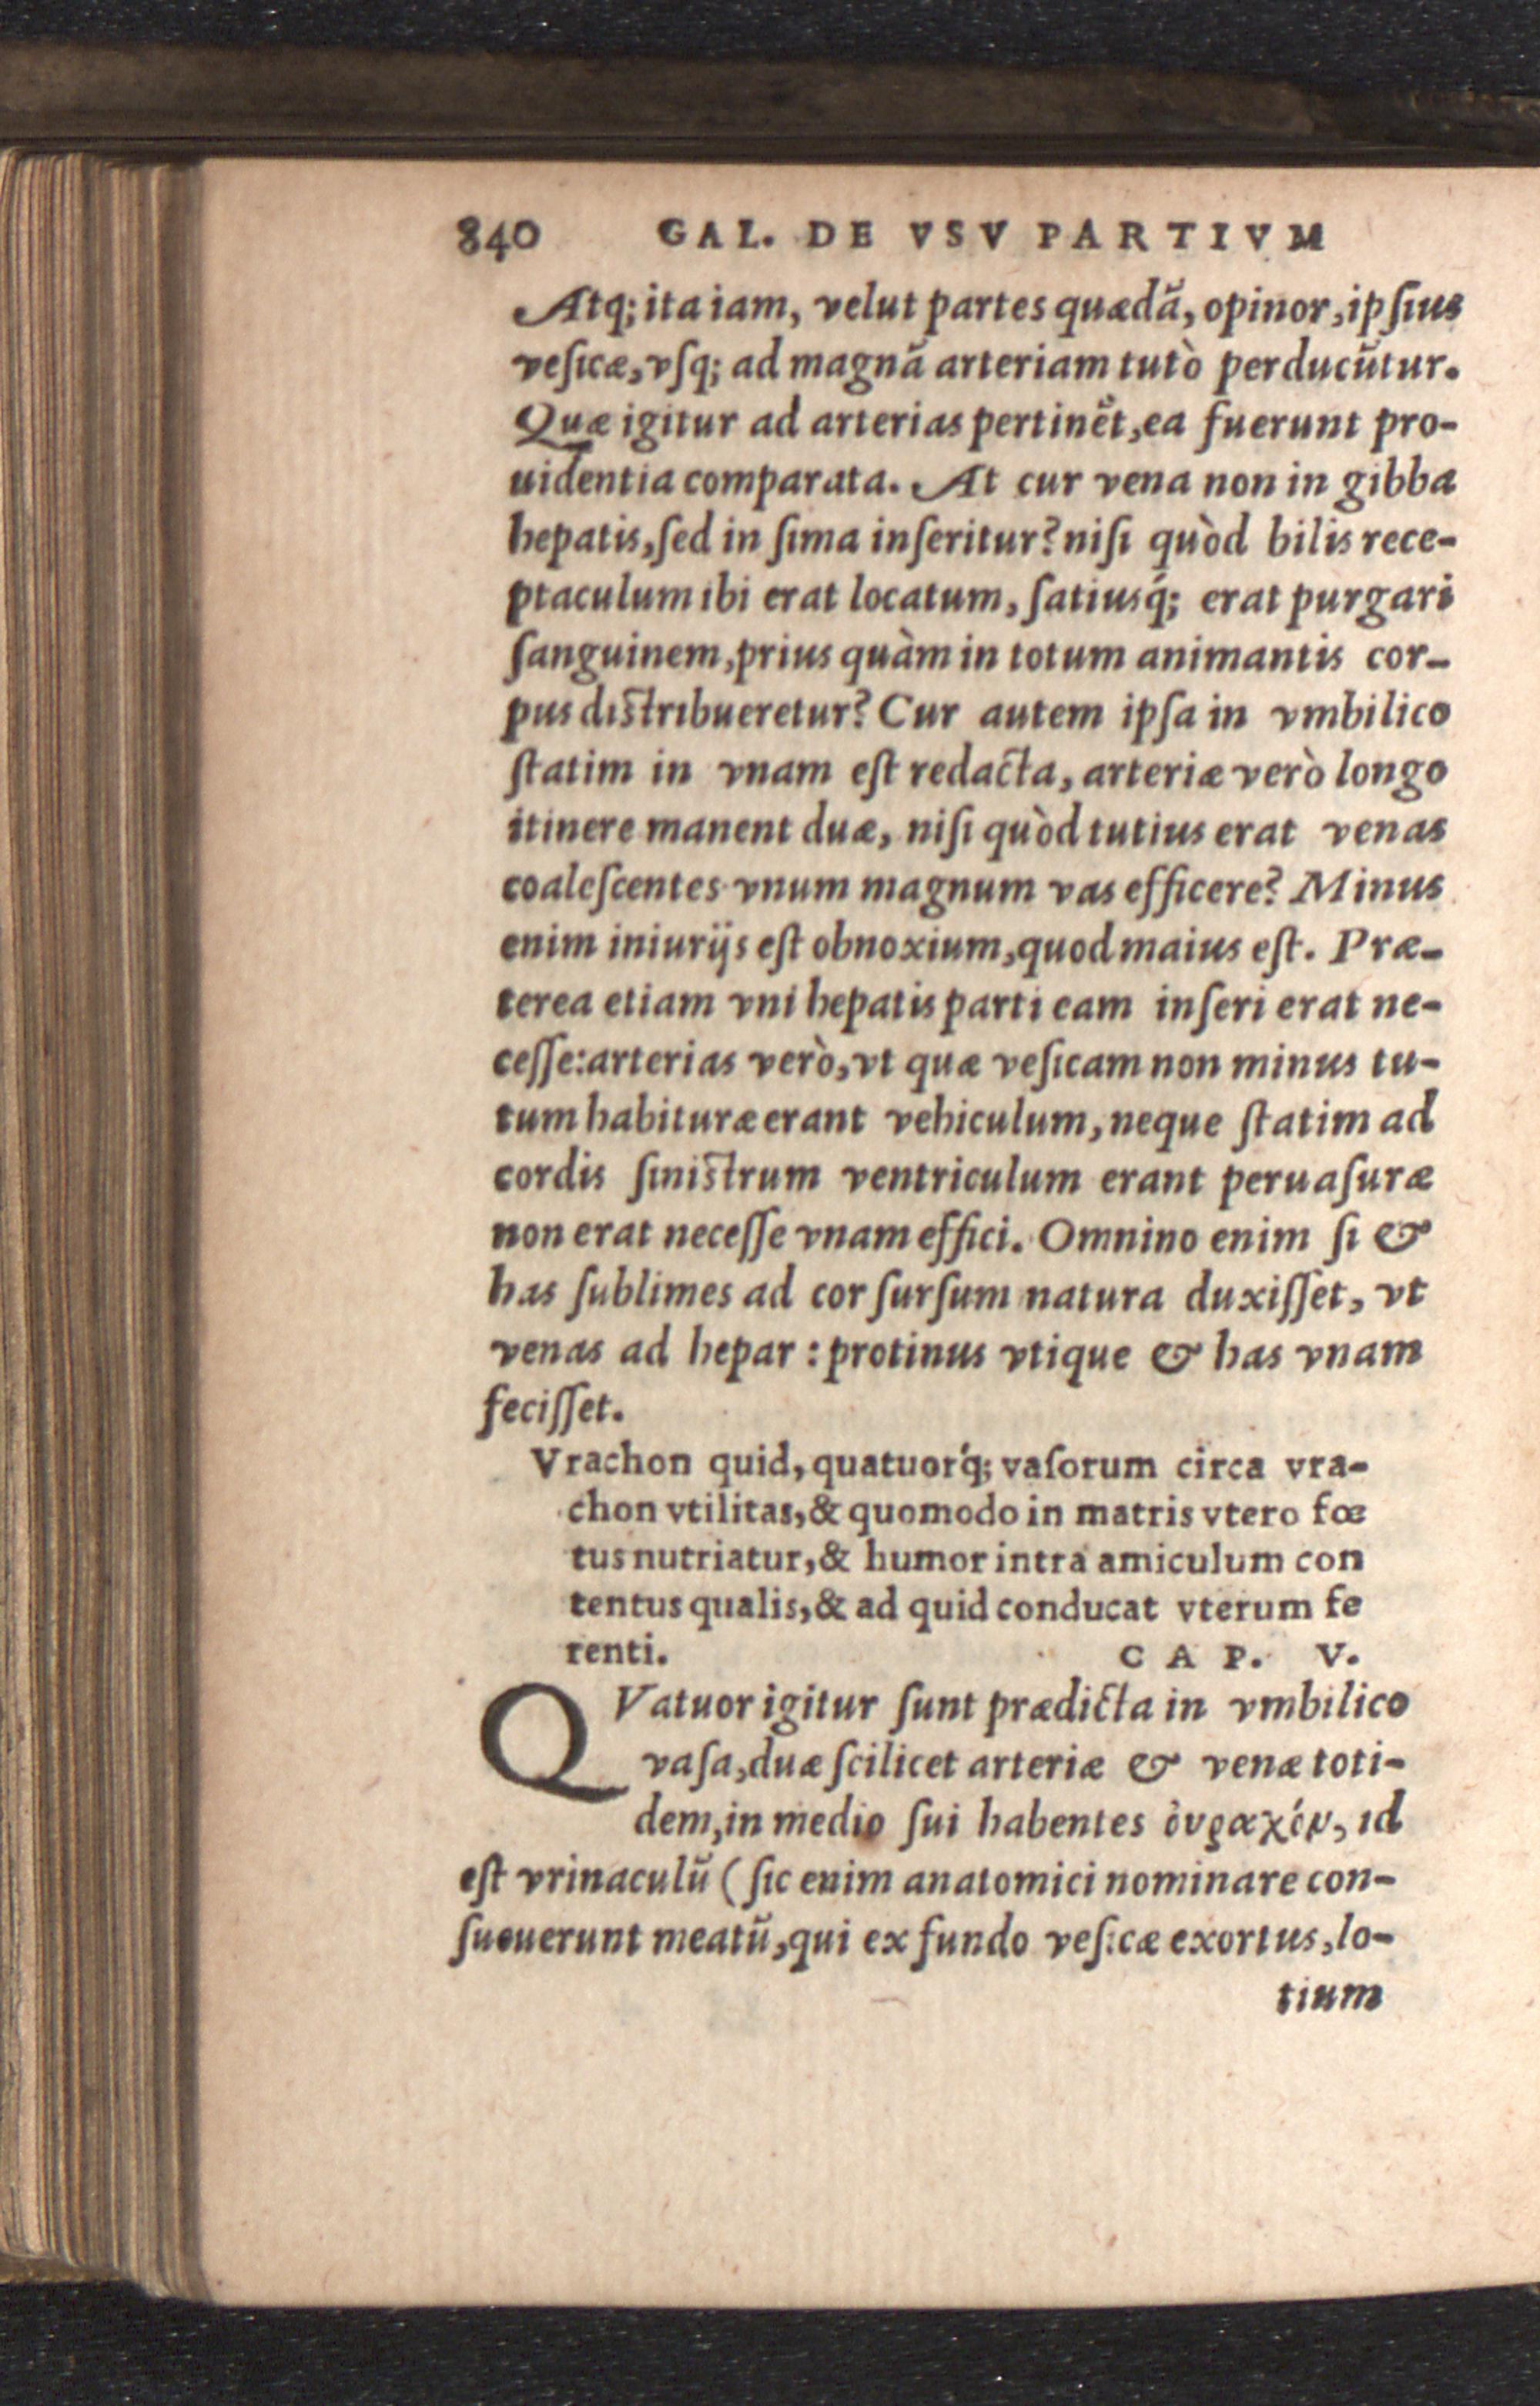 840 GAL. DE VSV PARTIVM
Atq; ita iam, velut partes quædã, opinor, ipſius
veſicæ, vſq; ad magnã arteriam tutò perducũtur.
Quæ igitur ad arterias pertinẽt, ea fuerunt pro-
uidentia comparata. At cur vena non in gibba
hepatis, ſed in ſima inſeritur? niſi quòd bilis rece-
ptaculum ibi erat locatum, ſatiusq́; erat purgari
ſanguinem, prius quàm in totum animantis cor-
pus diſtribueretur? Cur autem ipſa in vmbilico
ſtatim in vnam eſt redacta, arteriæ verò longo
itinere manent duæ, niſi quòd tutius erat venas
coaleſcentes vnum magnum vas efficere? Minus
enim iniurijs eſt obnoxium, quod maius eſt. Præ-
terea etiam vni hepatis parti eam inſeri erat ne-
ceſſe: arterias verò, vt quæ veſicam non minus tu-
tum habituræ erant vehiculum, neque ſtatim ad
cordis ſiniſtrum ventriculum erant peruaſuræ
non erat neceſſe vnam effici. Omnino enim ſi &
has ſublimes ad cor ſurſum natura duxiſſet, vt
venas ad hepar : protinus vtique & has vnam
feciſſet.
Vrachon quid, quatuorq́; vaſorum circa vra-
chon vtilitas, & quomodo in matris vtero fœ
tus nutriatur, & humor intra amiculum con
tentus qualis, & ad quid conducat vterum fe
renti. CAP. V.
QVatuor igitur ſunt prædicta in vmbilico
vaſa, duæ ſcilicet arteriæ & venæ toti-
dem, in medio ſui habentes ὀυραχόν, id
eſt vrinaculũ (ſic enim anatomici nominare con-
ſueuerunt meatũ, qui ex fundo veſicæ exortus, lo-
tium